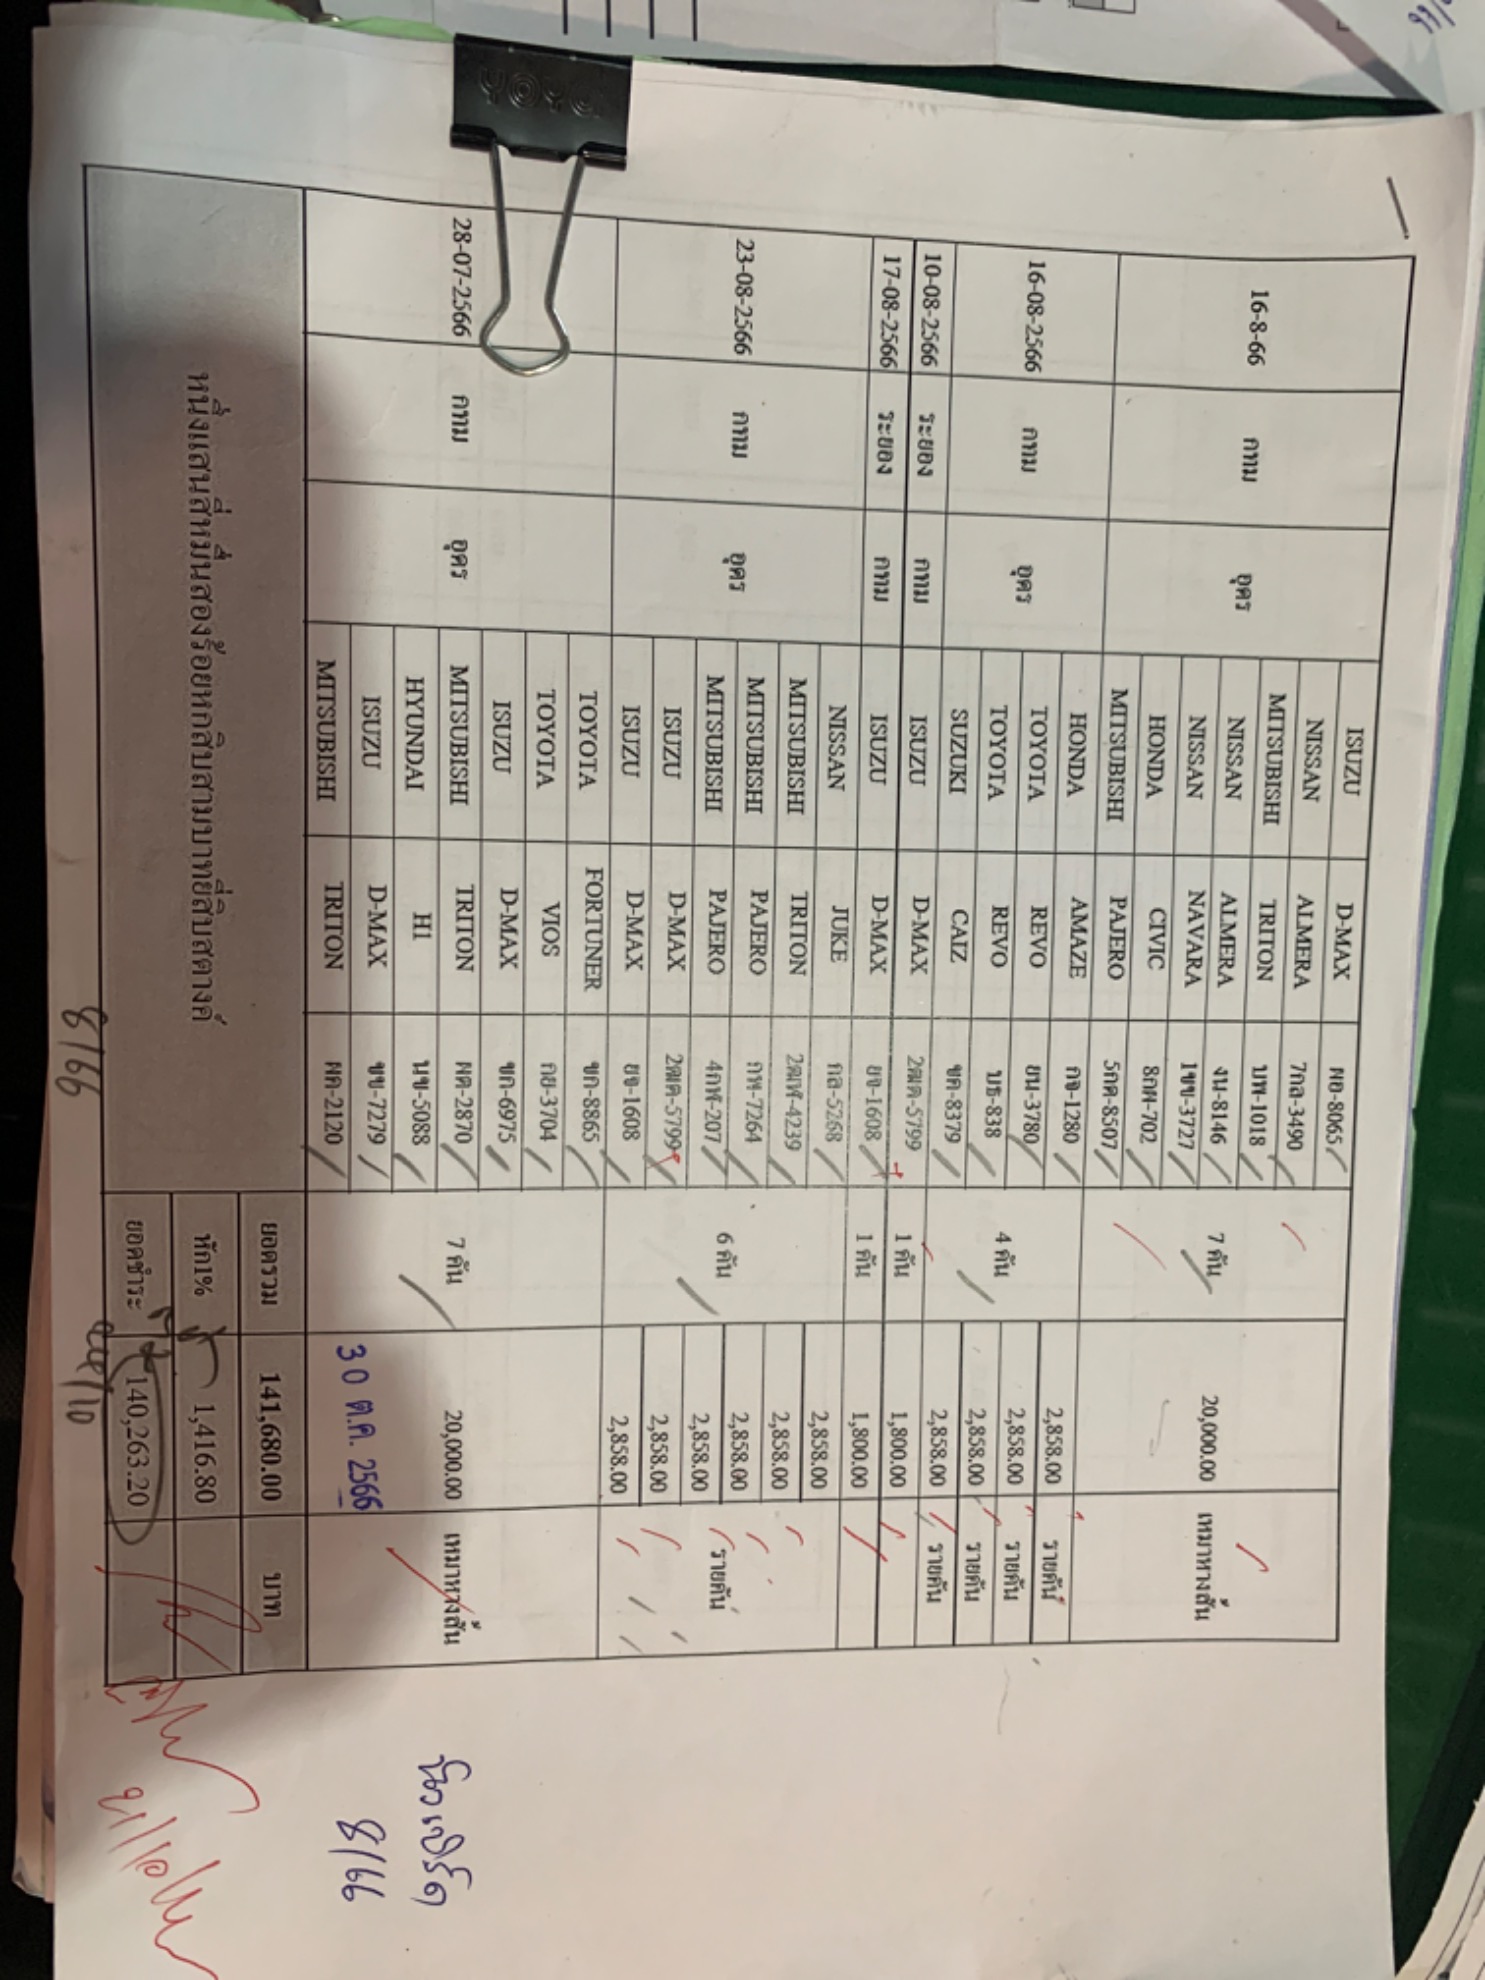 16-8-66 กทม อุดร
ISUZU D-MAX ผอ-8065
NISSAN ALMERA 7กล-3490
MITSUBISHI TRITON บพ-1018
NISSAN ALMERA งน-8146
NISSAN NAVARA 1ขข-3727
HONDA CIVIC 8กผ-702
MITSUBISHI PAJERO 5กด-8507
7 คัน 20,000.00 เหมาหางสั้น
16-08-2566 กทม อุดร
HONDA AMAZE กจ-1280 2,858.00 รายคัน
TOYOTA REVO ยน-3780 2,858.00 รายคัน
TOYOTA REVO บธ-838 2,858.00 รายคัน
SUZUKI CAIZ ขค-8379 2,858.00 รายคัน
4 คัน
10-08-2566 ระยอง กทม ISUZU D-MAX 2ฒด-5799 1 คัน 1,800.00
17-08-2566 ระยอง กทม ISUZU D-MAX ยจ-1608 1 คัน 1,800.00
23-08-2566 กทม อุดร
NISSAN JUKE กล-5268 2,858.00
MITSUBISHI TRITON 2ฒฬ-4239 2,858.00
MITSUBISHI PAJERO กพ-7264 2,858.00
MITSUBISHI PAJERO 4กฬ-207 2,858.00
ISUZU D-MAX 2ฒด-5799 2,858.00
ISUZU D-MAX ยจ-1608 2,858.00
6 คัน รายคัน
28-07-2566 กทม อุดร
TOYOTA FORTUNER ขก-8865
TOYOTA VIOS กย-3704
ISUZU D-MAX ขก-6975
MITSUBISHI TRITON ผด-2870
HYUNDAI H1 นข-5088
ISUZU D-MAX ขข-7279
MITSUBISHI TRITON ผค-2120
7 คัน 20,000.00 เหมาหางสั้น
30 ต.ค. 2566
ยอดรวม 141,680.00 บาท
หัก1% 1,416.80
หนึ่งแสนสี่หมื่นสองร้อยหกสิบสามบาทยี่สิบสตางค์ ยอดชำระ 140,263.20
8/66
8/66